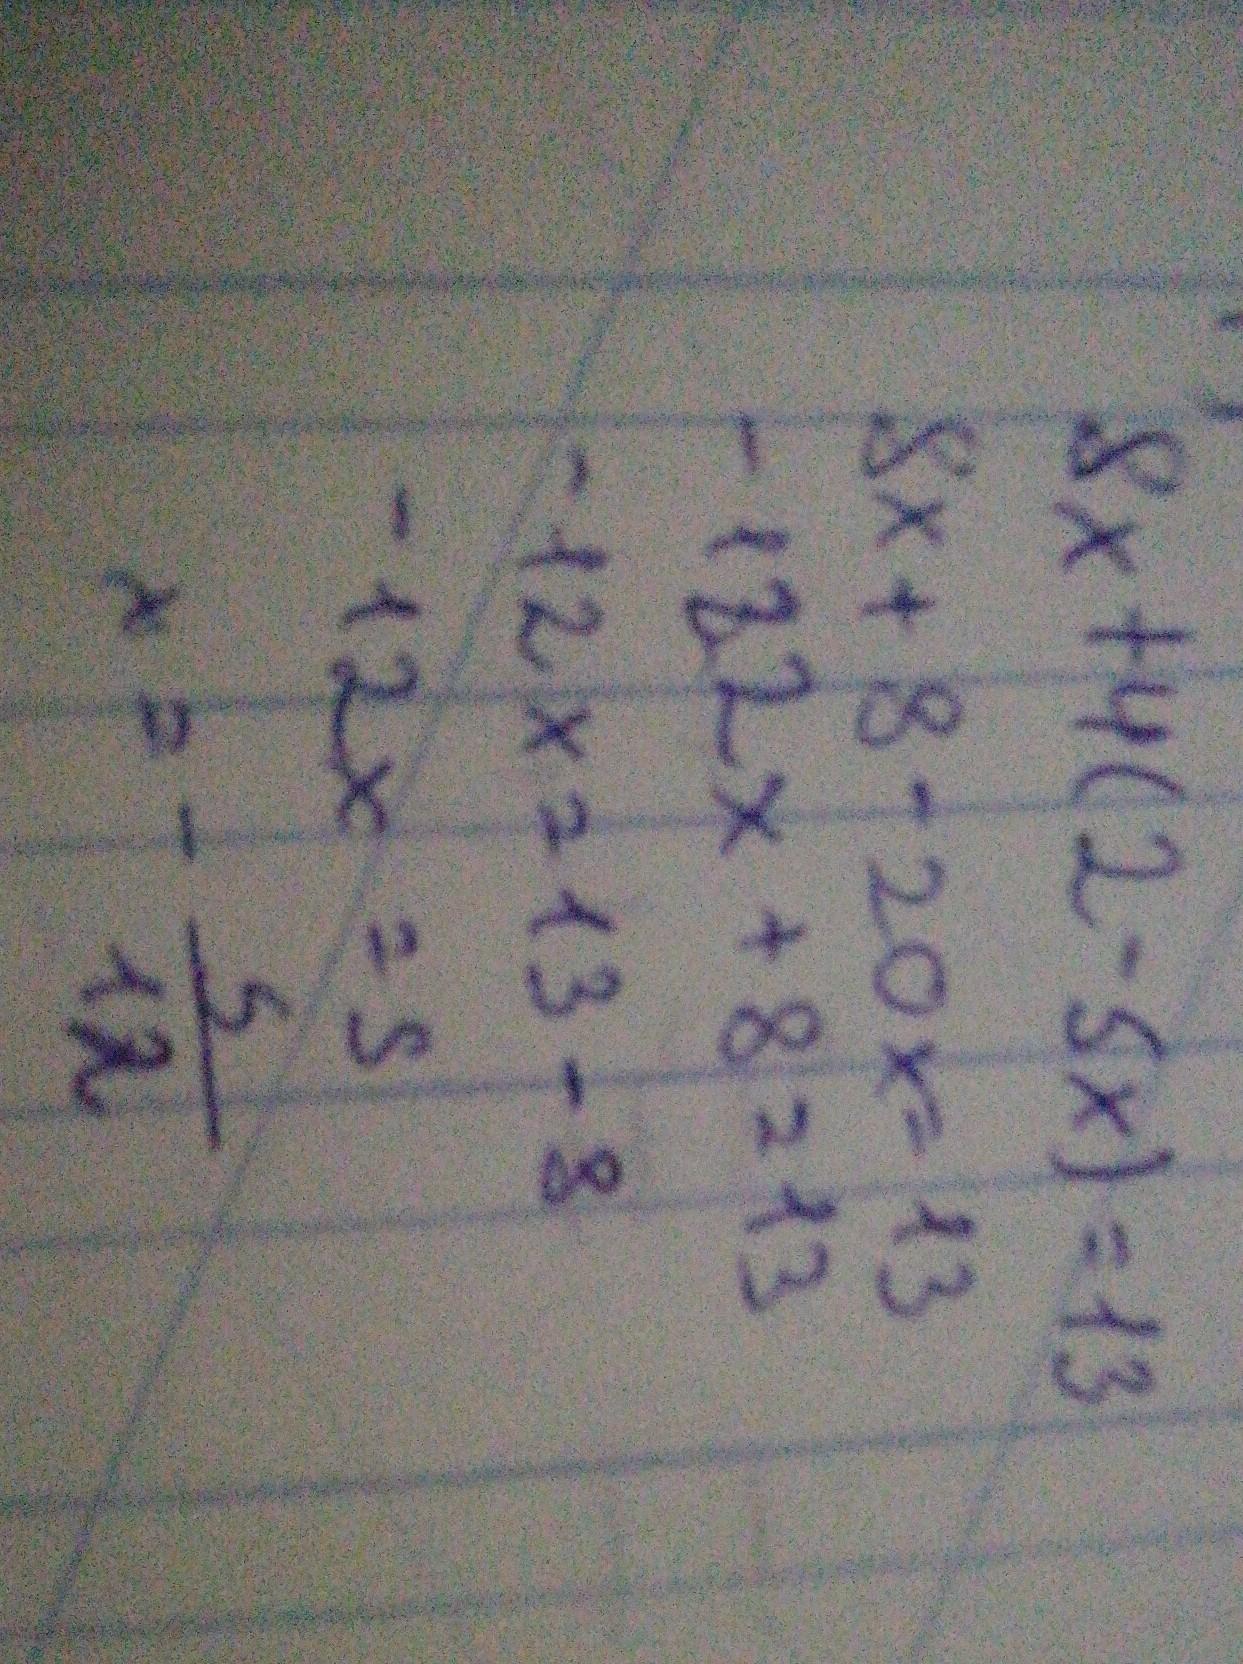 8x+4(2-5x)=13
8x+8-20x=13
-12x+8=13
-12x=13-8
-12x=5
x=-5/12